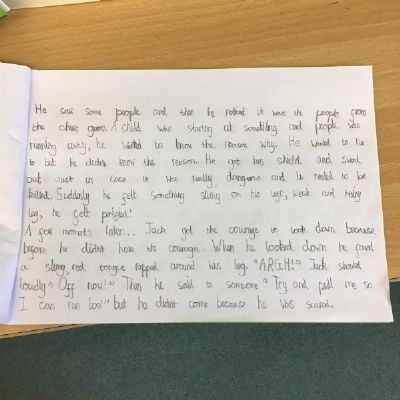 He saw some people and then he noticed it was the people from
the chess game. A child was staring at something and people was
running away, he wanted to know the reason why. He wanted to run
to but he didnt know the reason. He got his shield and sword
out just in case it was really dangerous and is needed to be
killed. Suddenly he felt something slimy on his left, weak and hairy
leg, he felt
A few moments later... Jack got the courage to look down because
before he didnt have the courage. When he looked down he found
a slimy, red tongue rapped around his leg. "ARGH!" Jack shouted
loudly "Off now!" Then he said to someone "Try and pull me so
I can run too!" but he didnt come because he was scared.